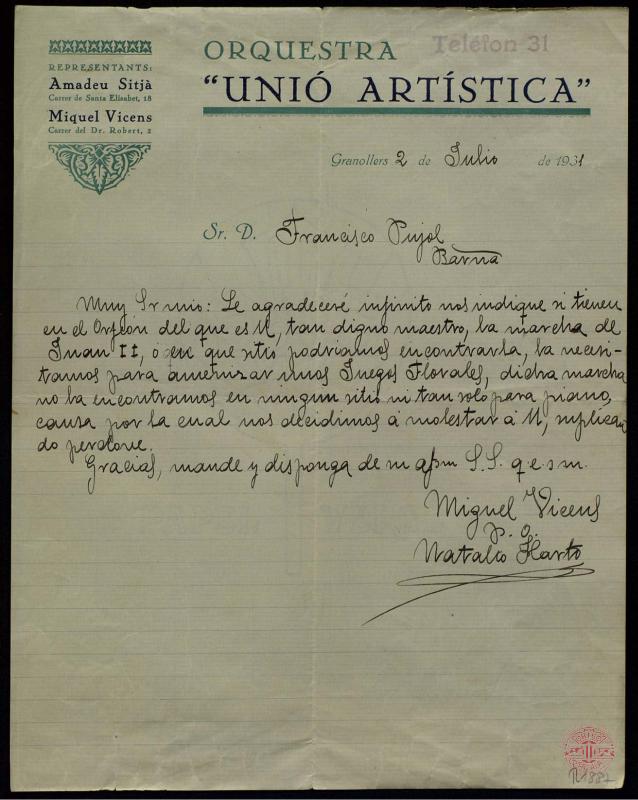 REPRESENTANTS:
Amadeu Sitjà
Carrer de Santa Elisabet, 18
Miquel Vicens
Carrer del Dr. Robert, 2
ORQUESTRA
Teléfon 31
"UNIÓ ARTÍSTICA"
Granollers 2 de Julio de 1931
Sr. D. Francisco Pujol
Barna
Muy Sr mio: Le agradeceré infinito nos indique si tienen
en el Orfeón del que es V, tan digno maestro, la marcha de
Juan II, ó que sitio podriamos encontrarla, la necesi-
tamos para amenizar unos Juegos Florales, dicha marcha
no la encontramos en ningun sitio ni tan solo para piano,
causa por la cual nos decidimos á molestar á V, suplican
do perdone.
Gracias, mande y disponga de su afsm S.S. q.e.s.m.
Miguel Vicens
p. o.
Natalio
R 1887